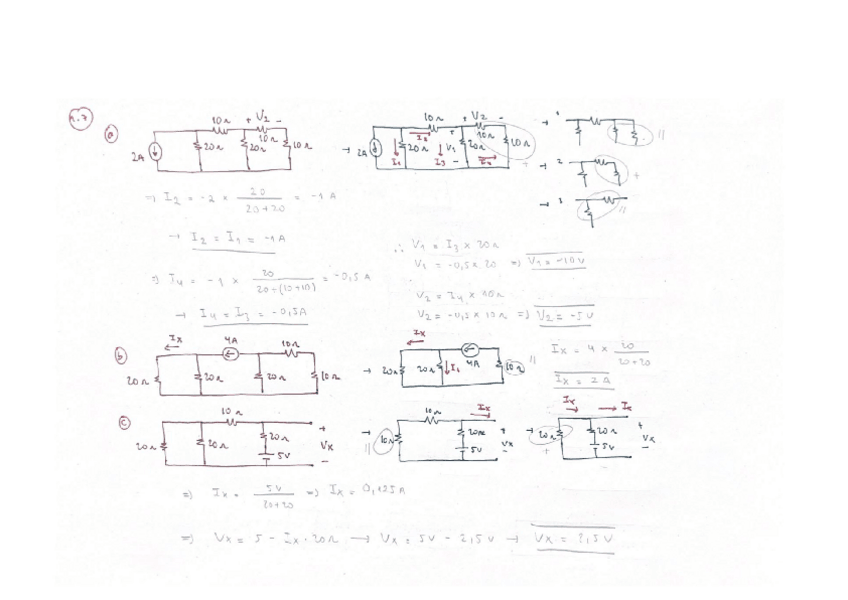 2.7
a
10Ω + V2 -
2A 20Ω 20Ω 10Ω 10Ω
→ 2A 10Ω + V2 - 20Ω I1 I2 I3 V1 20Ω 10Ω I4 10Ω
→ 1 //
→ 2 +
→ 3 //
⇒ I2 = -2 × 20 / 20+20 = -1 A
→ I2 = I1 = -1A
∴ V1 = I3 × 20Ω
V1 = -0,5 × 20 ⇒ V1 = -10V
⇒ I4 = -1 × 20 / 20+(10+10) = -0,5 A
→ I4 = I3 = -0,5A
V2 = I4 × 10Ω
V2 = -0,5 × 10Ω ⇒ V2 = -5V
b
Ix 4A 10Ω
20Ω 20Ω 20Ω 10Ω
→ Ix 20Ω 20Ω I1 4A 10Ω //
Ix = 4 × 20 / 20+20
Ix = 2A
c
10Ω +
20Ω 20Ω 20Ω 5V Vx -
→ 10Ω // 10Ω Ix 20Ω 5V + Vx -
→ Ix Ix 20Ω + 20Ω 5V + Vx -
⇒ Ix = 5V / 20+20 ⇒ Ix = 0,125A
⇒ Vx = 5 - Ix · 20Ω → Vx = 5V - 2,5V → Vx = 2,5V